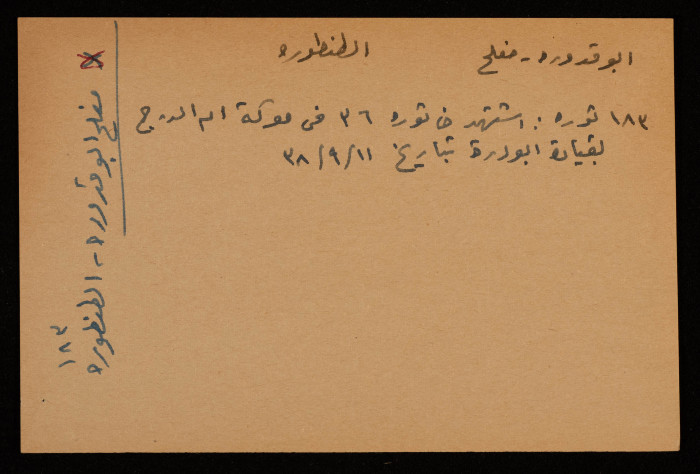 ابو قدوره - مفلح الطنطوره
١٨٣ ثوره : استشهد في ثوره ٣٦ في معركة ام الدرج
بقيادة ابو درة بتاريخ ٣٨/٩/١١
مفلح ابو قدوره - الطنطوره
١٨٣